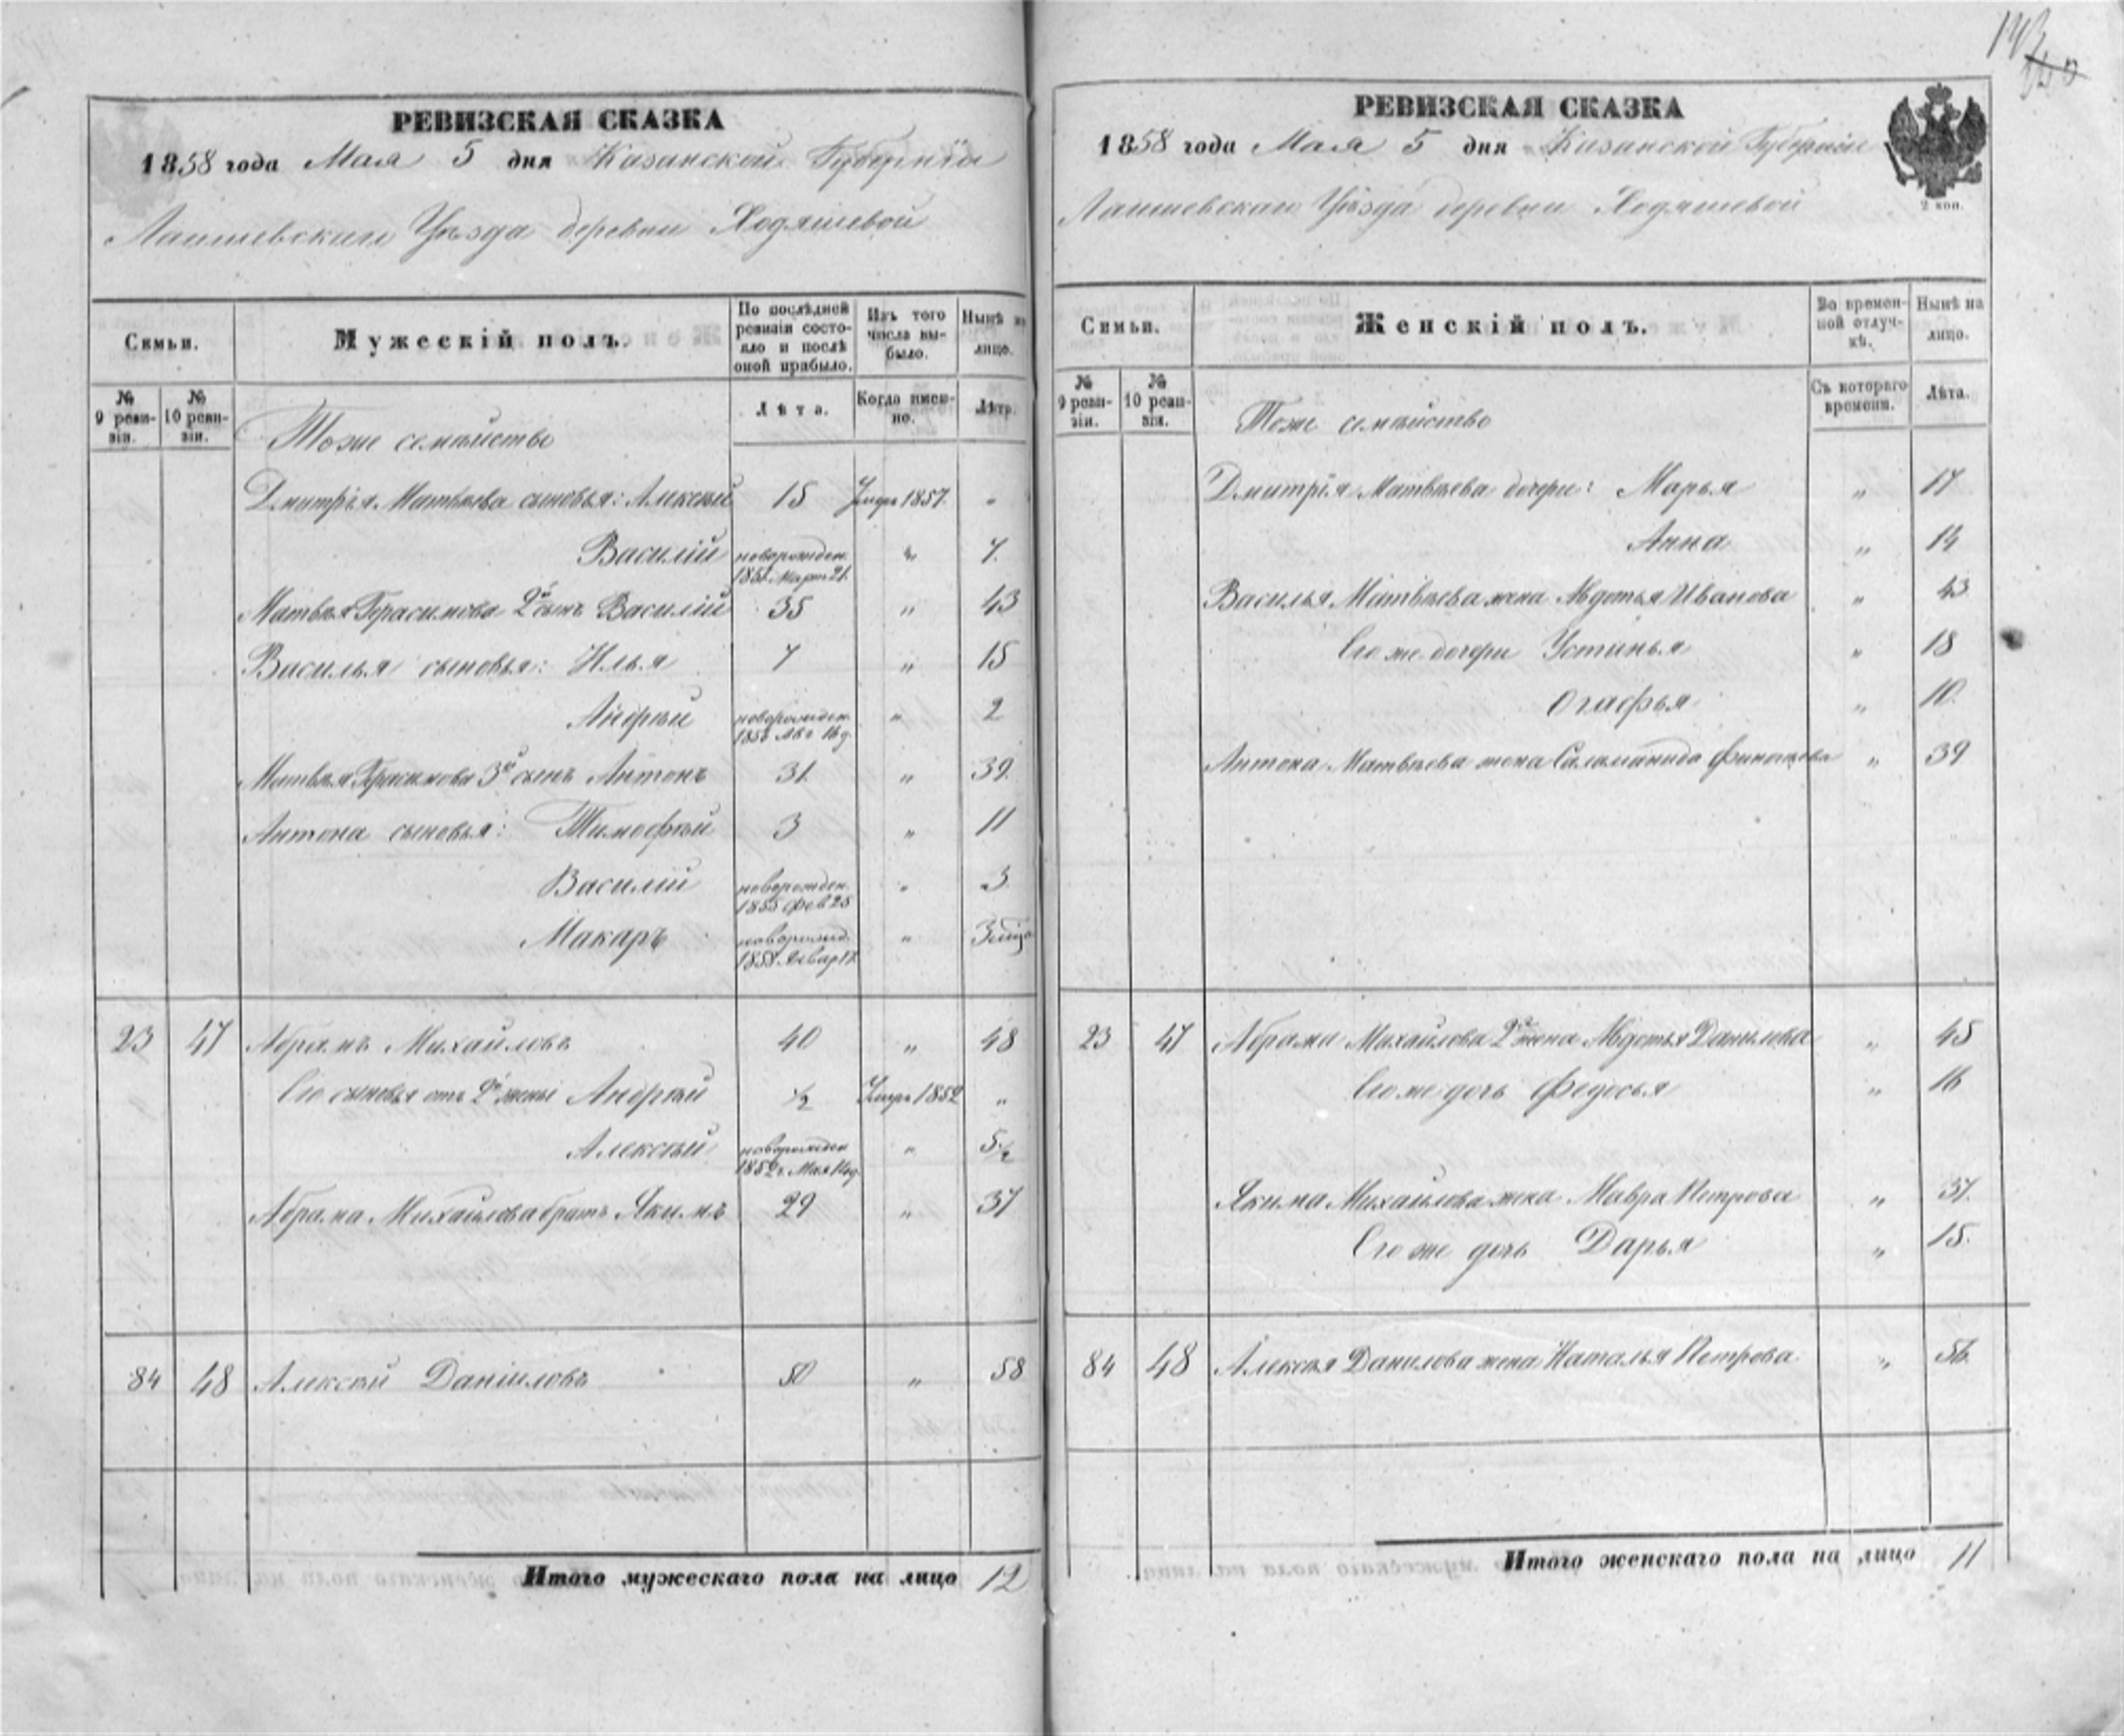 РЕВИЗСКАЯ СКАЗКА
1858 года Мая 5 дня Казанской Губерніи
Лаишевскаго Уѣзда деревни Ходяшевой
Семьи.
Мужескій полъ.
По послѣдней ревизіи состояло и послѣ оной прибыло.
Изъ того числа выбыло.
Нынѣ на лицо.
№ 9 ревизіи.
№ 10 ревизіи.
Лѣта.
Когда именно.
Лѣта.
Тоже семейство
Дмитрія Матвѣева сыновья: Алексѣй 15 Умеръ 1857 "
Василій новорожден. 1851 Март 21. " 7.
Матвѣя Герасимова 2й сынъ Василій 35 " 43
Василья сыновья: Илья 7 " 15
Андрей новорожден. 1855 Авг 16 д. " 2
Матвѣя Герасимова 3й сынъ Антонъ 31. " 39.
Антона сыновья: Тимофѣй 3 " 11
Василій новорожден. 1855 Фев 25 " 3
Макаръ новорожд. 1858 Январ " 3
23 47 Абрамъ Михайловъ 40 " 48
Его сыновья отъ 2й жены Андрей ½ Умеръ 1852 "
Алексѣй новорожден 1852 г. Мая " 5½
Абрама Михайлова братъ Якимъ 29 " 37
84 48 Алексѣй Даніиловъ 50 " 58
Итого мужескаго пола на лицо 12
РЕВИЗСКАЯ СКАЗКА
1858 года Мая 5 дня Казанской Губерніи
2 коп.
Лаишевскаго Уѣзда деревни Ходяшевой
Семьи.
Женскій полъ.
Во временной отлучкѣ.
Нынѣ на лицо.
№ 9 ревизіи.
№ 10 ревизіи.
Съ котораго времени.
Лѣта.
Тоже семейство
Дмитрія Матвѣева дочери: Марья " 17
Анна " 14
Василья Матвѣева жена Авдотья Иванова " 43
Его же дочери Устинья " 18
Огафья " 10.
Антона Матвѣева жена Саломанида " 39
23 47 Абрама Михайлова 2я жена Авдотья Данилова " 45
Его же дочь Федосья " 16
Якима Михайлова жена Мавра Петрова " 37.
Его же дочь Дарья " 15.
84 48 Алексѣя Данилова жена Наталья Петрова " 56.
Итого женскаго пола на лицо 11